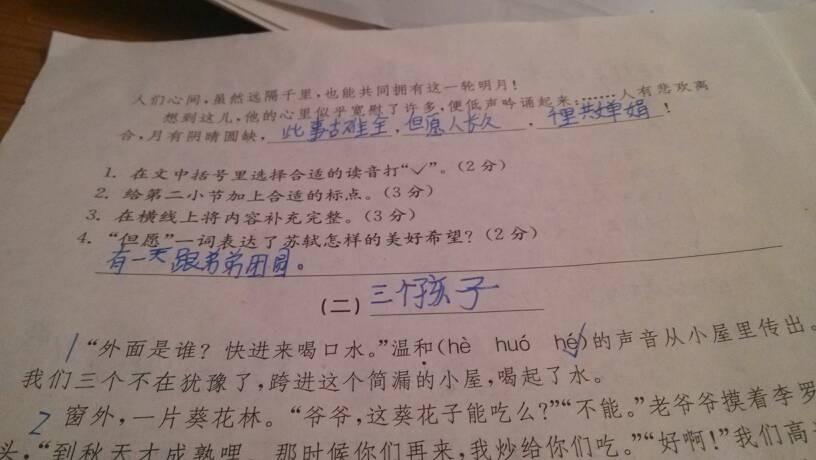 人们心间，虽然远隔千里，也能共同拥有这一轮明月！
想到这儿，他的心里似乎宽慰了许多，便低声吟诵起来：……人有悲欢离
合，月有阴晴圆缺，此事古难全，但愿人长久，千里共婵娟！
1. 在文中括号里选择合适的读音打“✓”。(2分)
2. 给第二小节加上合适的标点。(3分)
3. 在横线上将内容补充完整。(3分)
4. “但愿”一词表达了苏轼怎样的美好希望？(2分)
有一天跟弟弟团圆。
(二) 三个孩子
1 “外面是谁？快进来喝口水。”温和(hè huó hé✓)的声音从小屋里传出。
我们三个不在犹豫了，跨进这个简漏的小屋，喝起了水。
2 窗外，一片葵花林。“爷爷，这葵花子能吃么？”“不能。”老爷爷摸着李罗
头，“到秋天才成熟哩，那时候你们再来，我炒给你们吃。”“好啊！”我们高